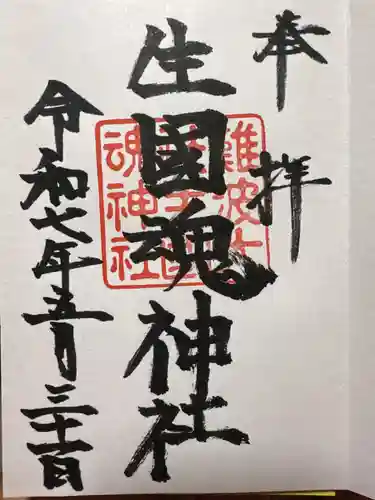 奉拝
生國魂神社
難波大
生國
魂神社
令和七年五月三十一日